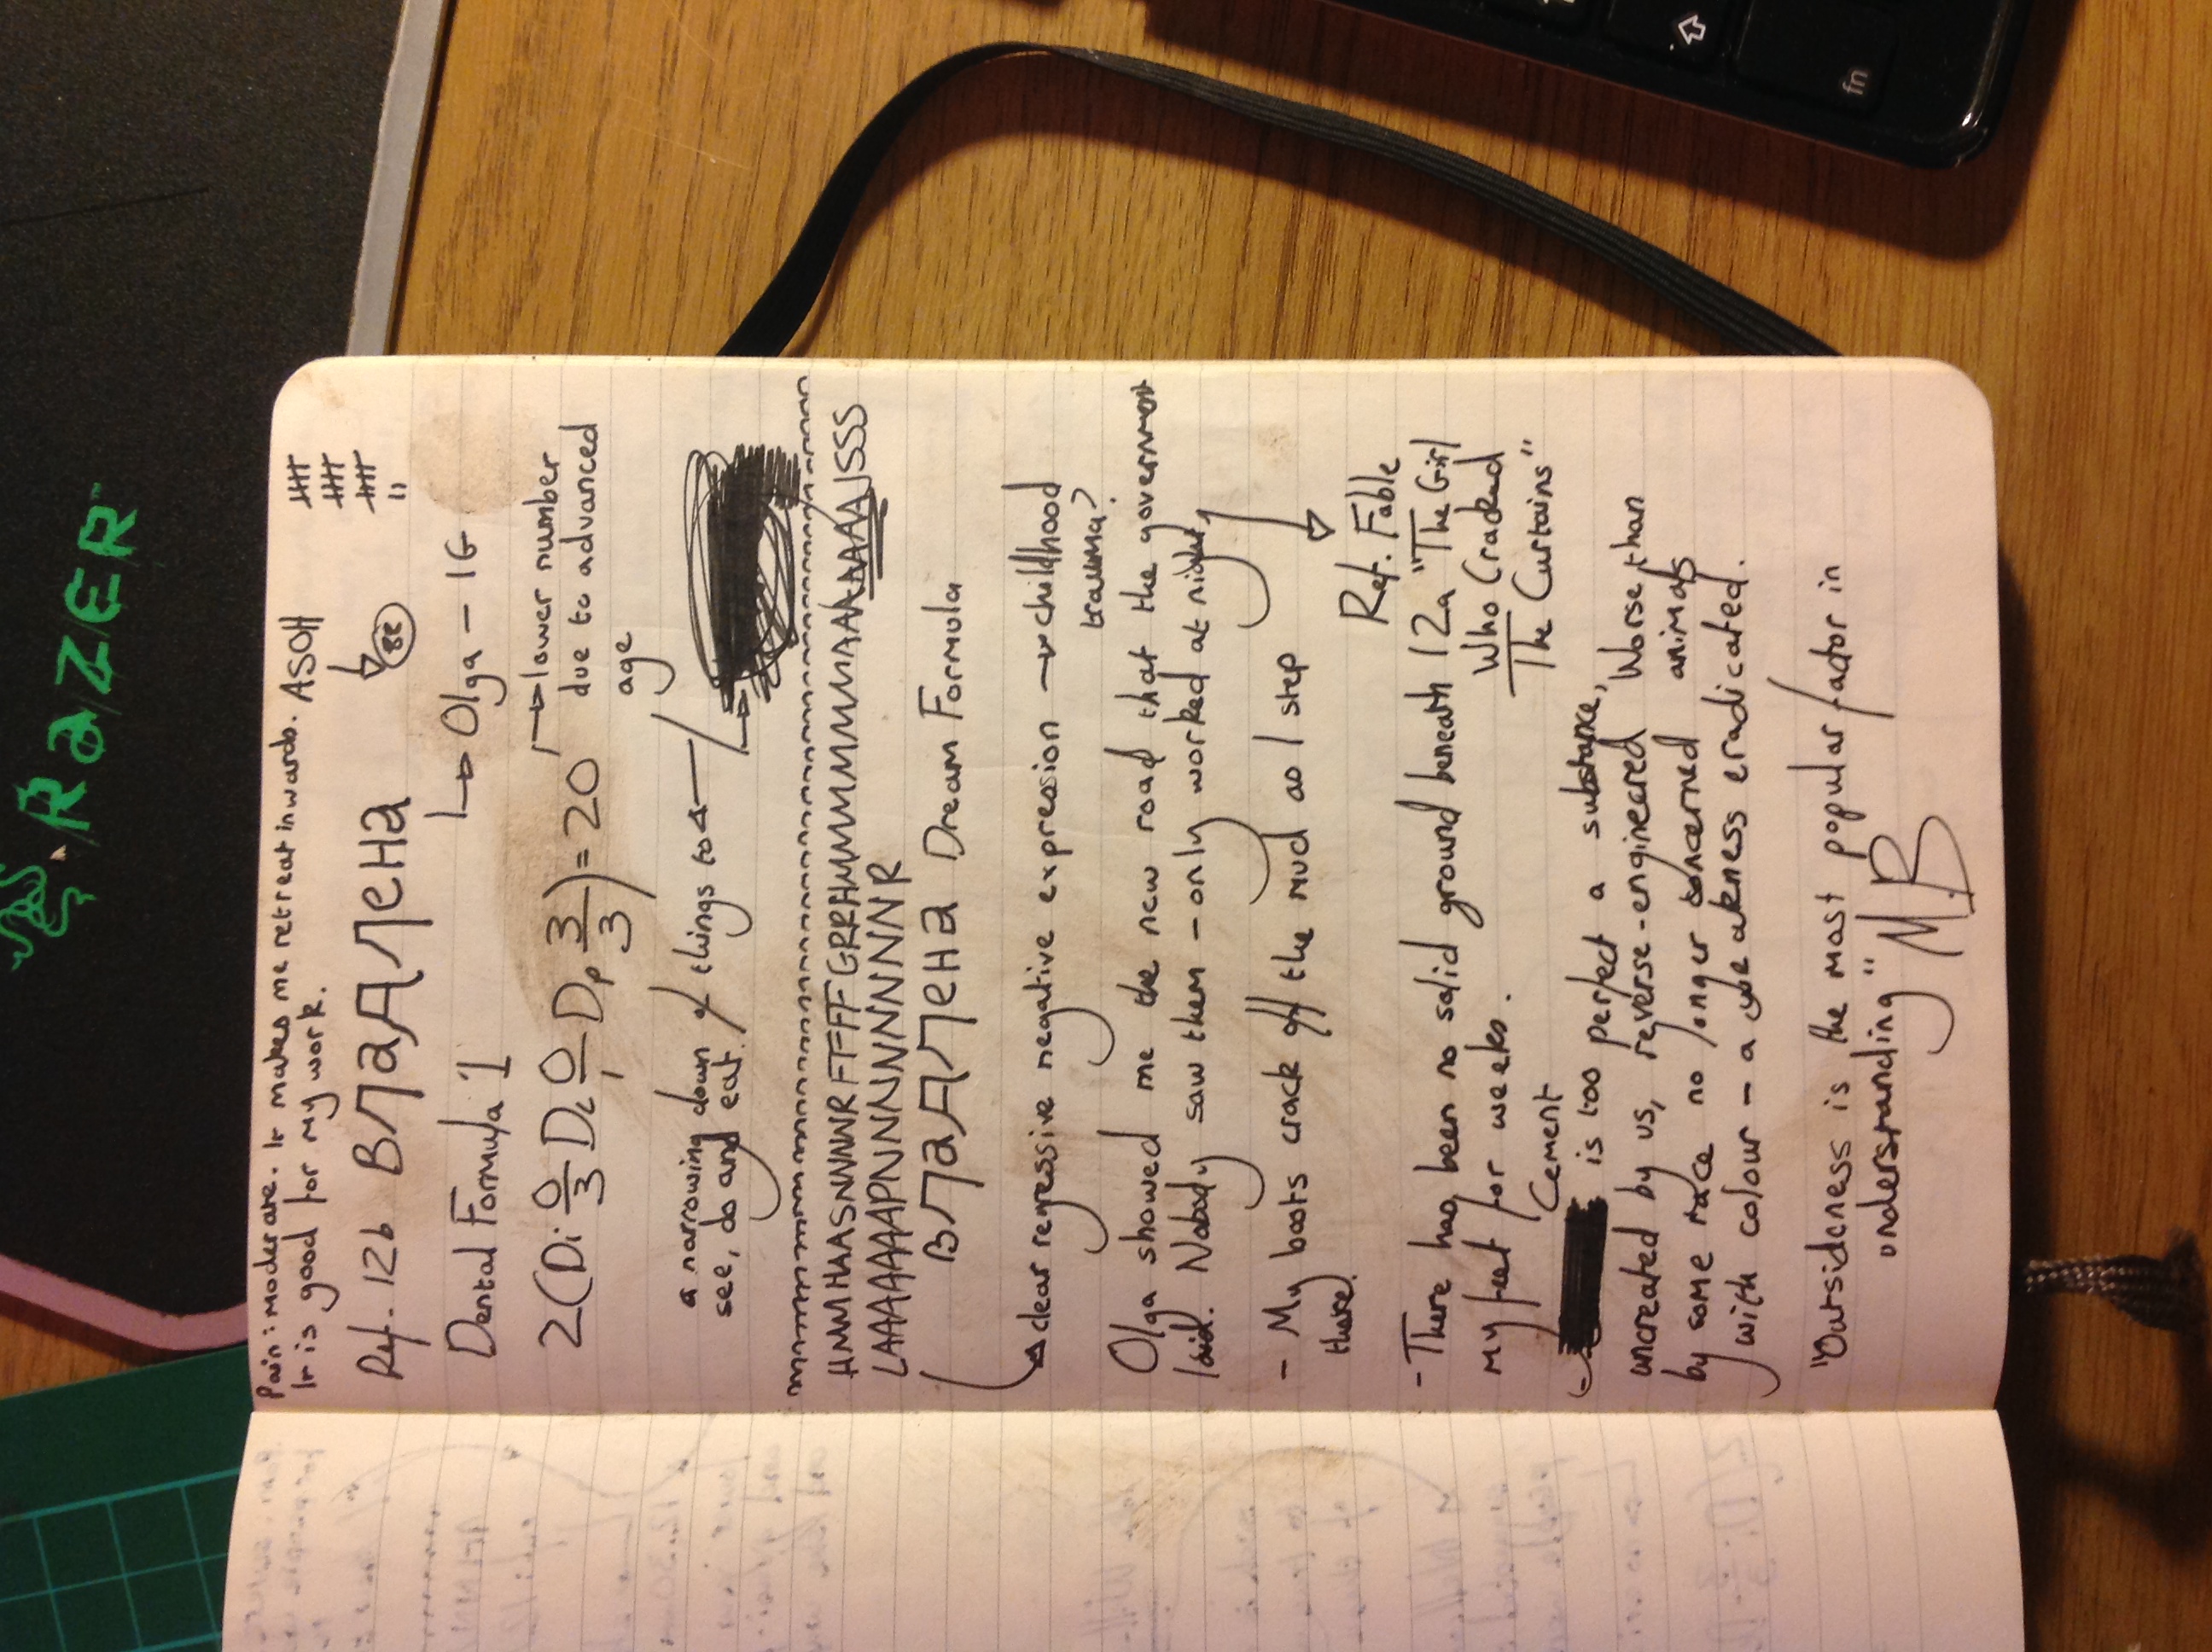 RAZER
Pain: Moderate. It makes me retreat inwards.
It is good for my work.
ASOH
Ref. 12b Владлена
Olga - IG
Dental Formula 1
2(Di 0/3 Dc 0/1 Dp 3/3) = 20
lower number
due to advanced
age
a narrowing down of things to
see, do and eat.
LAAAAAAAPNNNNNNNNNR
Владлена Dream Formula
clear regressive negative expression → childhood
trauma?
Olga showed me the new road that the government
laid. Nobody saw them - only worked at night,
- My boots crack off the mud as I step
there.
Ref. Fable
12a "The Girl
Who Cracked
The Curtains"
- There has been no solid ground beneath
my feet for weeks.
Cement
is too perfect a substance,
uncreated by us, reverse-engineered
by some race no longer concerned
with colour - a weakness eradicated.
Worse than
animals
"Outsideness is the most popular factor in
understanding" M.B
fn